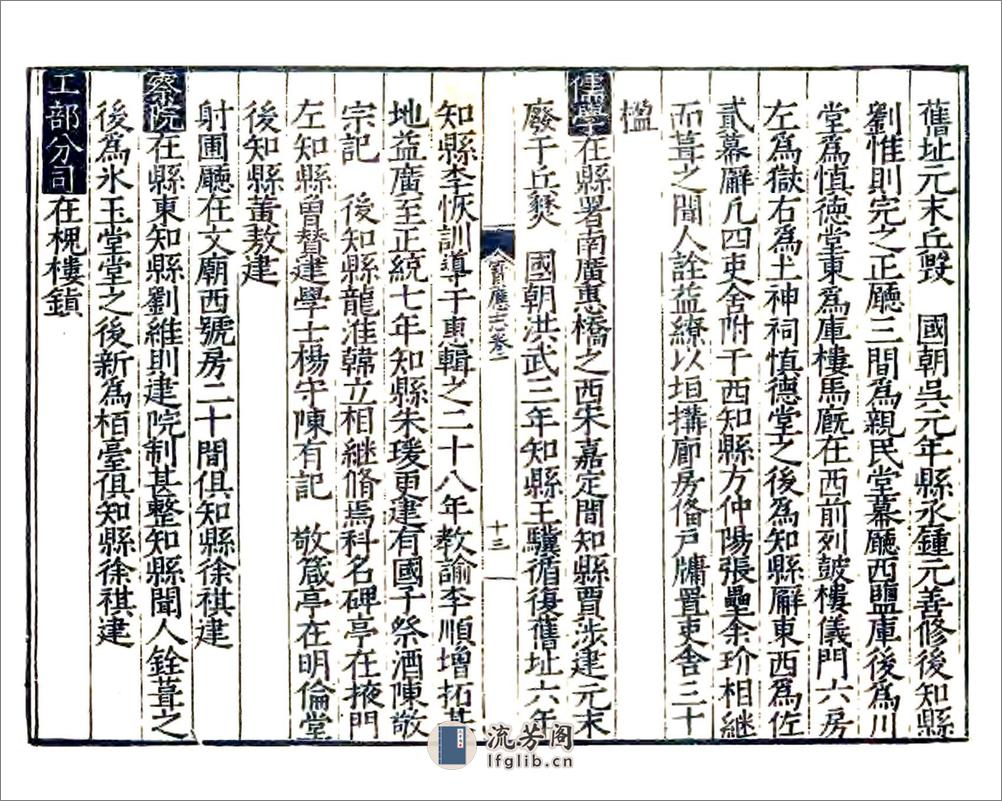 舊址元末丘毀　國朝吳元年縣丞鍾元善修後知縣
劉惟則完之正廳三間為親民堂幕廳西鹽庫後為川
堂為慎德堂東為庫樓馬廐在西前列鼓樓儀門六房
左為獄右為土神祠慎德堂之後為知縣廨東西為佐
貳幕廨凡四吏舍附于西知縣方仲陽張壘余玠相繼
而葺之聞人詮益繚以垣搆廊房俻戸牗置吏舎三十
楹
儒學在縣署南廣惠橋之西宋嘉定間知縣賈涉建元末
廢于丘燹　國朝洪武三年知縣王驥循復舊址六年
寳應志卷二
十三
知縣李恢訓導于惠輯之二十八年教諭李順增拓其
地益廣至正統七年知縣朱瑗更建有國子祭酒陳敬
宗記　後知縣龍淮韓立相継脩焉科名碑亭在掖門
左知縣曾贊建學士楊守陳有記　敬箴亭在明倫堂
後知縣葷敖建
射圃廳在文廟西號房二十間俱知縣徐祺建
察院在縣東知縣劉維則建院制甚整知縣聞人銓葺之
後為氷玉堂堂之後新為栢臺俱知縣徐祺建
工部分司在槐樓鎮
流芳阁
lfglib.cn